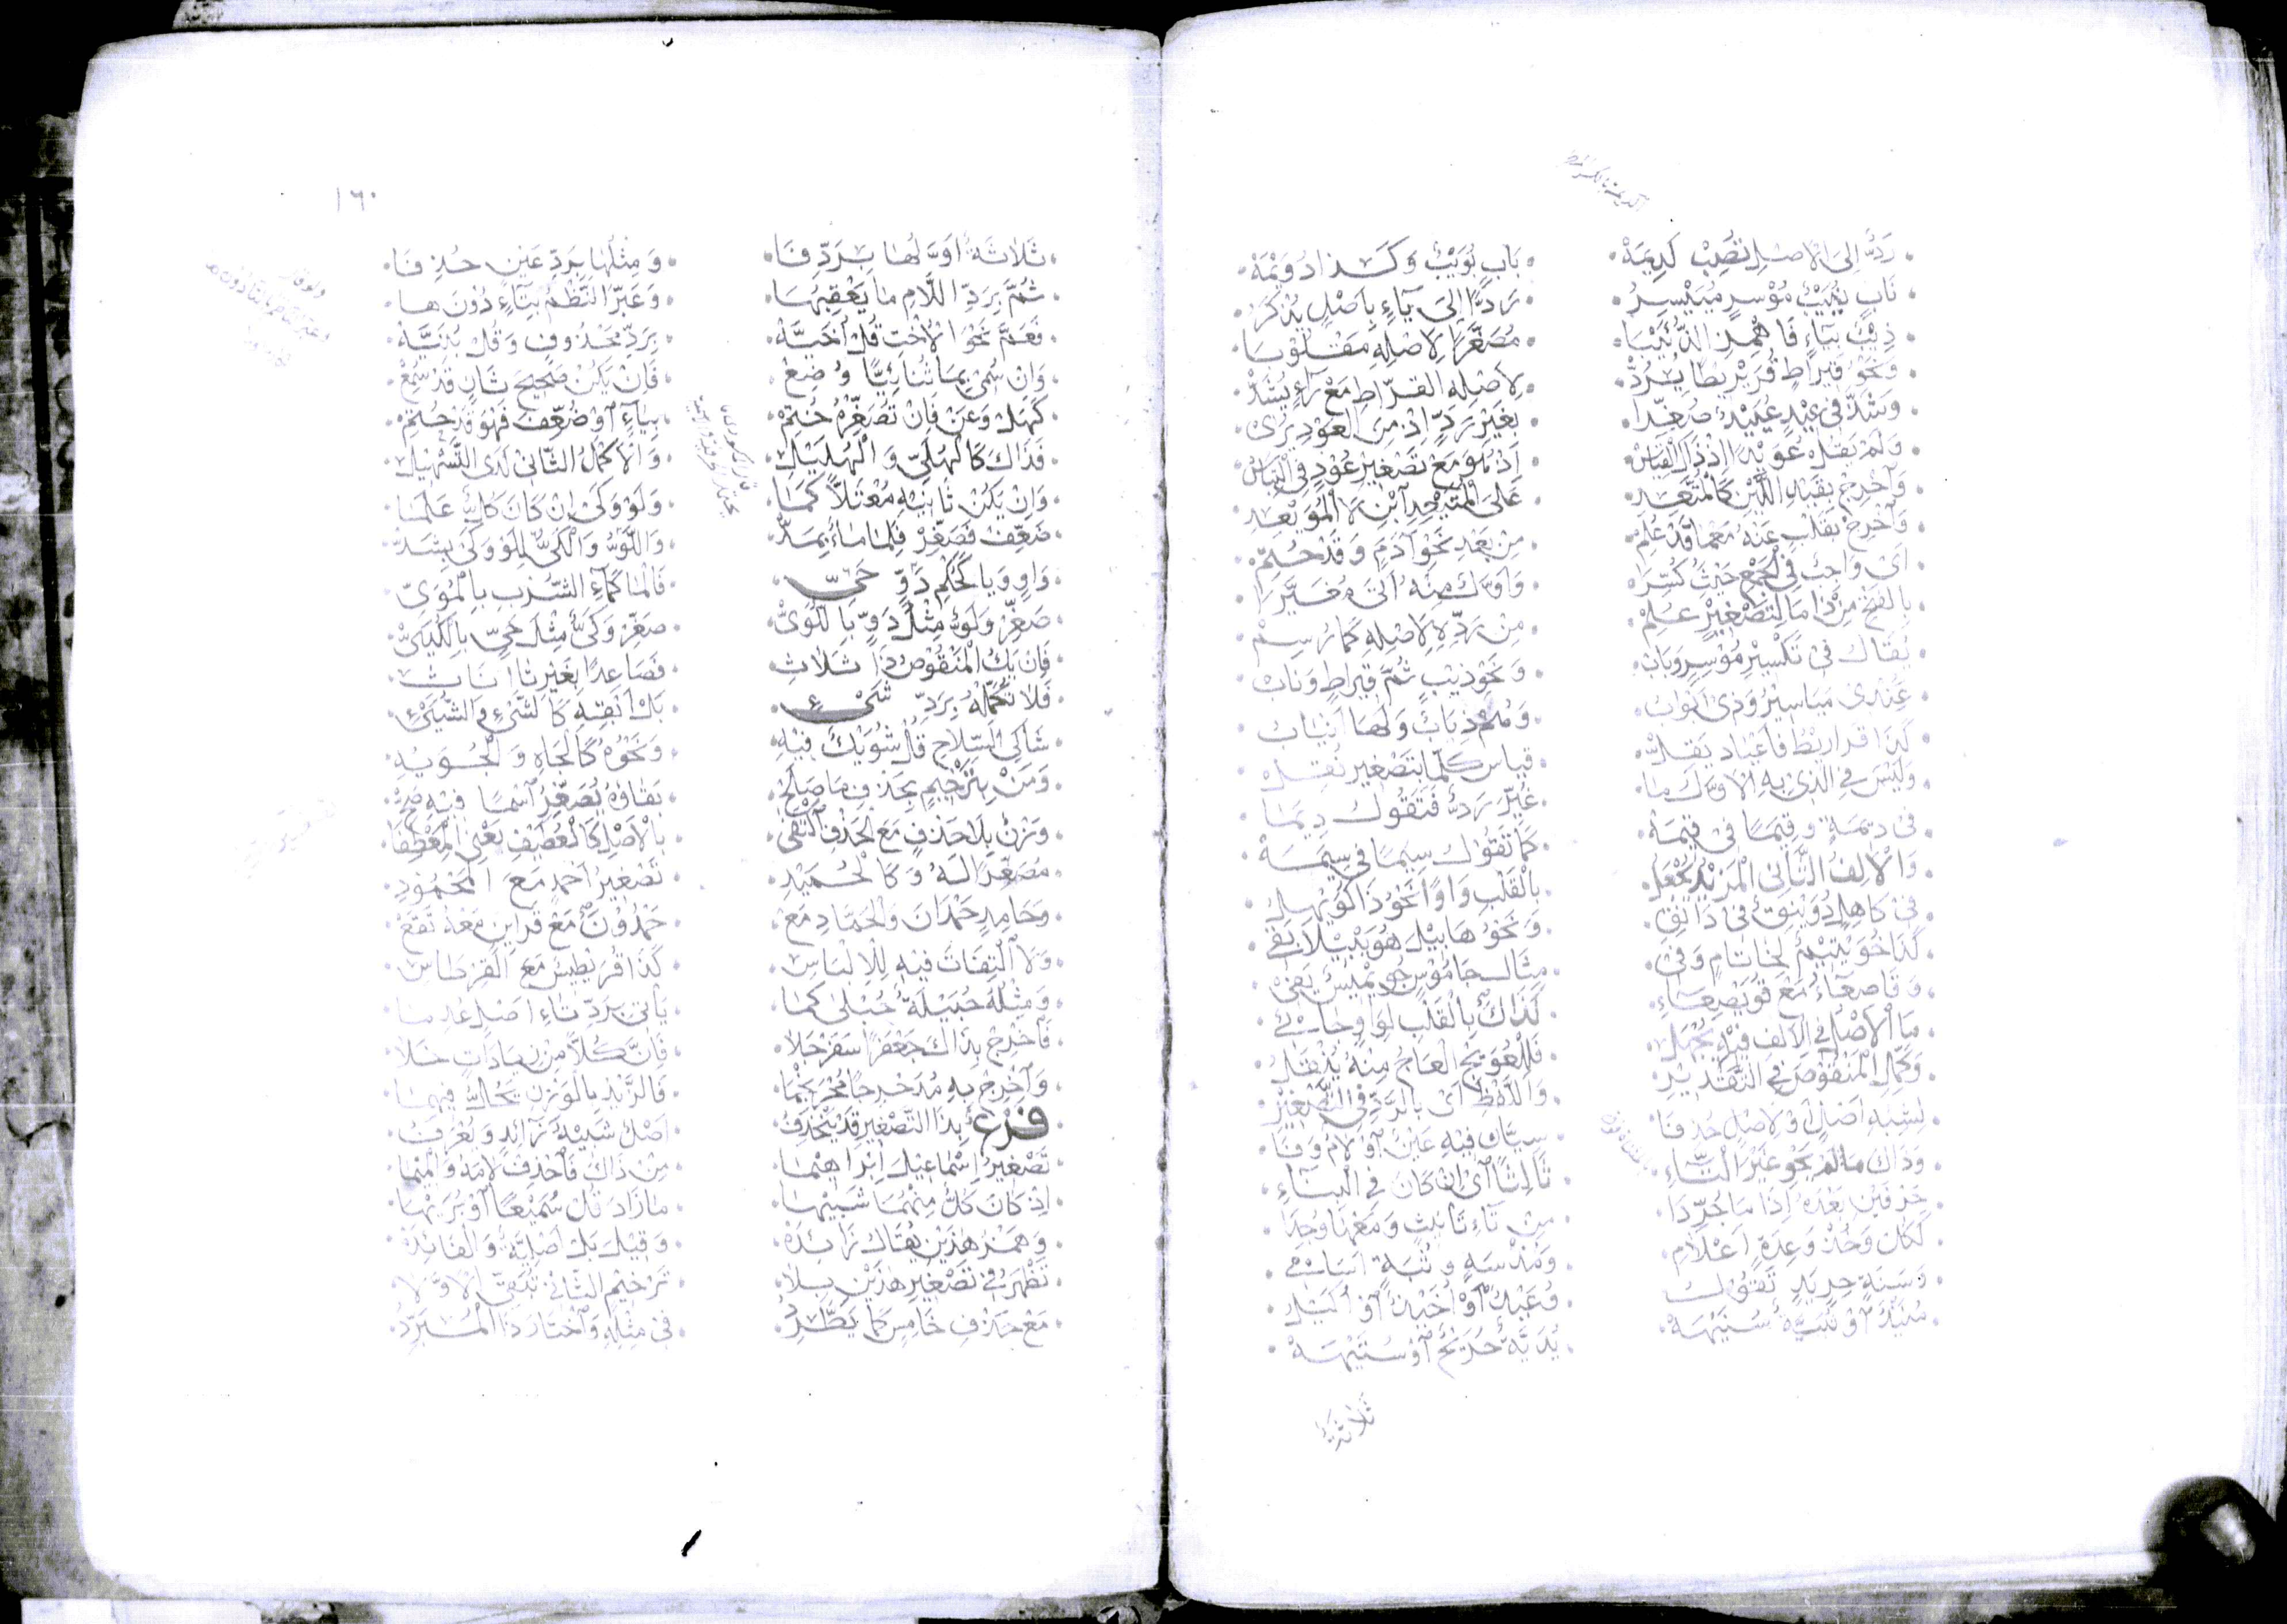 رَدُّ اِلَى الْاَصْلِ تُصِبْ كَدِيمَةْ • بَابٍ بُوَيْبٌ وَكَذَا دُوَيْمَةْ
نَابٍ نُيَيْبٌ مُوْسِرٍ مُيَيْسِرُ • رَدًّا اِلَى يَآءٍ بِاَصْلٍ يُذْكَرُ
ذِيْبٌ بِيَاءٍ فَاهْمِزِ الذُّئَيْبَا • مُصَغَّرًا لِاَصْلِهِ مَقْلُوْبَا
وَنَحْوُ قِيْرَاطٍ قُرَيْرِيْطًا يُرَدّْ • لِاَصْلِهِ الْقِرَّاطِ مَعْ رَآءٍ يُشَدّْ
وَشَذَّ فِى عِيْدٍ عُيَيْدٌ صُغِّرَا • بِغَيْرِ رَدٍّ اِذْ مِنَ الْعَوْدِ يُرَى
وَلَمْ يُقَلْ عُوَيْدٌ اِذْ ذَاكَ الْقِيَاسْ • اِذْ هُوَ مَعْ تَصْغِيْرِ عُوْدٍ فِى الْتِبَاسْ
وَاَخْرِجْ بِقَلْبِ اللِّيْنِ كَالْمُتَّعِدِ • عَلَى الْمُتَيْعِدِ ابْنِ لَا الْمُوَيْعِدِ
وَاَخْرِجْ بِقَلْبٍ عَنْهُ مَعْمَا قَدْ عُلِمْ • مِنْ بَعْدِ نَحْوِ آدَمٍ وَقَدْ حُتِمْ
اَىْ وَاجِبٌ فِى الْجَمْعِ حَيْثُ كُسِّرَا • وَاَوَّلٌ مِنْهُ اَتَى مُغَيَّرَا
بِالْفَتْحِ مِنْ ذَا مَا لِتَصْغِيْرٍ عُلِمْ • مِنْ رَدِّهِ لِاَصْلِهِ كَمَا رُسِمْ
يُقَالُ فِى تَكْسِيْرِ مُوْسِرٍ وَبَابْ • وَنَحْوِ ذِيْبٍ ثُمَّ قِيْرَاطٍ وَنَابْ
عِنْدِى مَيَاسِيْرُ وَذِى اَبْوَابُ • وَهُمْ ذِيَابٌ وَلَهَا اَنْيَابُ
كَذَا قَرَارِيْطُ فَاَعْيَادٌ يُقَلْ • قِيَاسُ كُلِّمَا بِتَصْغِيْرٍ نُقِلْ
وَلَيْسَ فِى الَّذِى بِهِ الْاَوَّلُ مَا • غُيِّرَ رَدٌّ فَتَقُوْلُ دِيَمَا
فِى دِيْمَةٍ وَقِيَمًا فِى قِيْمَةْ • كَمَا تَقُوْلُ سِيَمًا فِى سِيْمَةْ
وَالْاَلِفُ الثَّانِى الْمَزِيْدُ يُجْعَلُ • بِالْقَلْبِ وَاوًا نَحْوُ ذَا كُوَيْهِلُ
فِى كَاهِلٍ دُوَيْنِقٌ فِى دَانِقِ • وَنَحْوُ هَابِيْلَ هُوَيْبِيْلًا بَقِى
كَذَا خُوَيْتِيْمٌ لِخَاتَامٍ وَفِى • مِثَالِ جَامُوْسٍ جُوَيْمِيْسٌ يَفِى
وَقَاصِعَاءُ مَعْ قُوَيْصِعَاءِ • كَذَاكَ بِالْقَلْبِ لِوَاوٍ جَاءِ
مَا الْاَصْلُ فِى الْاَلِفِ فِيْهِ يُجْهَلُ • فَلِلْعُوَيْجِ الْعَاجُ مِنْهُ يُنْقَلُ
وَكَمِّلِ الْمَنْقُوْصَ فِى التَّقْدِيْرِ • وَاللَّفْظِ اَىْ بِالرَّدِّ فِى التَّصْغِيْرِ
لِشِبْهِ اَصْلٍ اَوْ لِاَصْلٍ حُذِفَا • سِيَّانِ فِيْهِ عَيْنٌ اَوْ لَامٌ وَفَا
وَذَاكَ مَا لَمْ يَحْوِ غَيْرَ التَّاءِ • ثَالِثًا اَىْ اِنْ كَانَ فِى الْبِنَاءِ
حَرْفَيْنِ بَعْدَهُ اِذَا مَا جُرِّدَا • مِنْ تَآءِ تَانِيْثٍ وَمَعْهَا وُجِدَا
كَكُلْ وَخُذْ وَعِدَةٍ اَعْلَامِ • وَمُذْ سَهٍ وَثُبَةٍ اَسَامِى
وَسَنَةٍ حِرٍ يَدٍ تَقُوْلُ • وُعَيْدٌ اَوْ اُخَيْذٌ اَوْ اُكَيْلُ
مُنَيْذٌ اَوْ ثُبَيَّةٌ سُنَيْهَةْ • يُدَيَّةٌ حُرَيْحٌ اَوْ سُتَيْهَةْ
ثلاثة
١٦٠
ثَلَاثَةٌ اَوَّلُهَا بِرَدِّ فَا • وَمِثْلُهَا بِرَدِّ عَيْنٍ حُذِفَا
ثُمَّ بِرَدِّ اللَّامِ مَا يَعْقِبُهَا • وَعَبَّرَ النَّظْمُ بِتَآءٍ دُوْنَ هَا
فَعَمَّ نَحْوَ الْاُخْتِ قُلْ اُخَيَّةْ • بِرَدِّ مَحْذُوفٍ وَقُلْ بُنَيَّةْ
وَاِنْ سُمِىْ بِمَا ثُنَائِيًّا وُضِعْ • فَاِنْ يَكُنْ صَحِيْحَ ثَانٍ قَدْ سُمِعْ
كَهَلْ وَعَنْ فَاِنْ تُصَغِّرْهُ خُتِمْ • بِيَآءٍ اَوْ ضُعِّفَ فَهْوَ قَدْ حُتِمْ
فَذَاكَ كَالْهُلَىِّ وَالْهُلَيْلِ • وَالْاَكْمَلُ الثَّانِى لَدَى التَّسْهِيْلِ
وَاِنْ يَكُنْ ثَانِيْهِ مُعْتَلًّا كَمَا • وَلَوْ وَكَىْ اِنْ كَانَ كُلٌّ عَلَمَا
ضُعِّفَ فَصَغِّرْ فَلِمَا مَاءٌ يُمَدّْ • وَاللَّوُّ وَالْكَىُّ لِلَوْ وَكَىْ يُشَدّْ
وَاوٍ وَيَا كَحُكْمِ دَوٍّ حَىِّ • فَالْمَا كَمَآءِ الشُّرْبِ بِالْمُوَىِّ
صَغِّرْ وَلَوٌّ مِثْلُ دَوٍّ بِاللُّوَىّْ • صَغِّرْ وَكَىٌّ مِثْلُ حَىٍّ بِالْكُيَىّْ
فَاِنْ يَكُ الْمَنْقُوْصُ ذَا ثَلَاثِ • فَصَاعِدًا بِغَيْرِ تَا اِنَاثِ
فَلَا تُكَمِّلْهُ بِرَدِّ شَىْءٍ • بَلْ اَبْقِهِ كَالشَّىْءِ وَالشُّيَىْءِ
شَاكِى السِّلَاحِ قُلْ شُوَيْكٌ فِيْهِ • وَنَحْوُهُ كَالْجَاهِ وَالْجُوَيْهِ
وَمَنْ بِتَرْخِيْمٍ بِحَذْفِ مَا صَلَحْ • بَقَاؤُهُ يُصَغِّرُ اسْمًا فِيْهِ صَحّْ
وَزْنٌ بِلَا حَذْفٍ مَعَ الْحَذْفِ اكْتَفَى • بِالْاَصْلِ كَالْعُطَيْفِ يَعْنِى الْمِعْطَفَا
مُصَغِّرًا لَهُ وَكَالْحُمَيْدِ • تَصْغِيْرُ اَحْمَدٍ مَعَ الْمَحْمُوْدِ
وَحَامِدٍ حَمْدَانَ وَالْحَمَّادِ مَعْ • حَمْدُوْنَ مَعْ قَرَائِنٍ مَعْهُ تَقَعْ
وَلَا الْتِفَاتَ فِيْهِ لِلْاِلْبَاسِ • كَذَا قُرَيْطِيْسٌ مَعَ الْقِرْطَاسِ
وَمِثْلُهُ حُبَيْلَةٌ حُبْلَى كَمَا • يَأْتِى بِرَدِّ تَاءِ اَصْلٍ عُدِمَا
فَاَخْرِجْ بِذَاكَ جَعْفَرًا سَفَرْجَلَا • فَاِنَّ كُلًّا مِنْ زِيَادَاتٍ خَلَا
وَاَخْرِجْ بِهِ مُدَحْرِجًا مُحْرَنْجِمَا • فَالزَّيْدُ بِالْوَزْنِ يُخِلُّ فِيْهِمَا
فَرْعٌ بِذَا التَّصْغِيْرِ قَدْ يَنْحَذِفُ • اَصْلٌ شَبِيْهُ زَائِدٍ وَيُعْرَفُ
تَصْغِيْرُ اِسْمَاعِيْلَ اِبْرَاهِيْمَا • مِنْ ذَاكَ فَاحْذِفْ لَامَهُ وَالْمِيْمَا
اِذْ كَانَ كُلٌّ مِنْهُمَا شَبِيْهَا • مَا زَادَ قُلْ سُمَيْعًا اَوْ بُرَيْهَا
وَهَمْزُ هٰذَيْنِ يُقَالُ زَائِدَةْ • وَقِيْلَ بَلْ اَصْلِيَّةٌ وَالْفَائِدَةْ
تَظْهَرُ فِى تَصْغِيْرِ هٰذَيْنِ بِلَا • تَرْخِيْمٍ الثَّانِى تُبَقِّى الْاَوَّلَا
مَعْ حَذْفِ خَامِسٍ كَمَا يَطَّرِدُ • فِى مِثْلِهِ وَاخْتَارَ ذَا الْمُبَرِّدُ